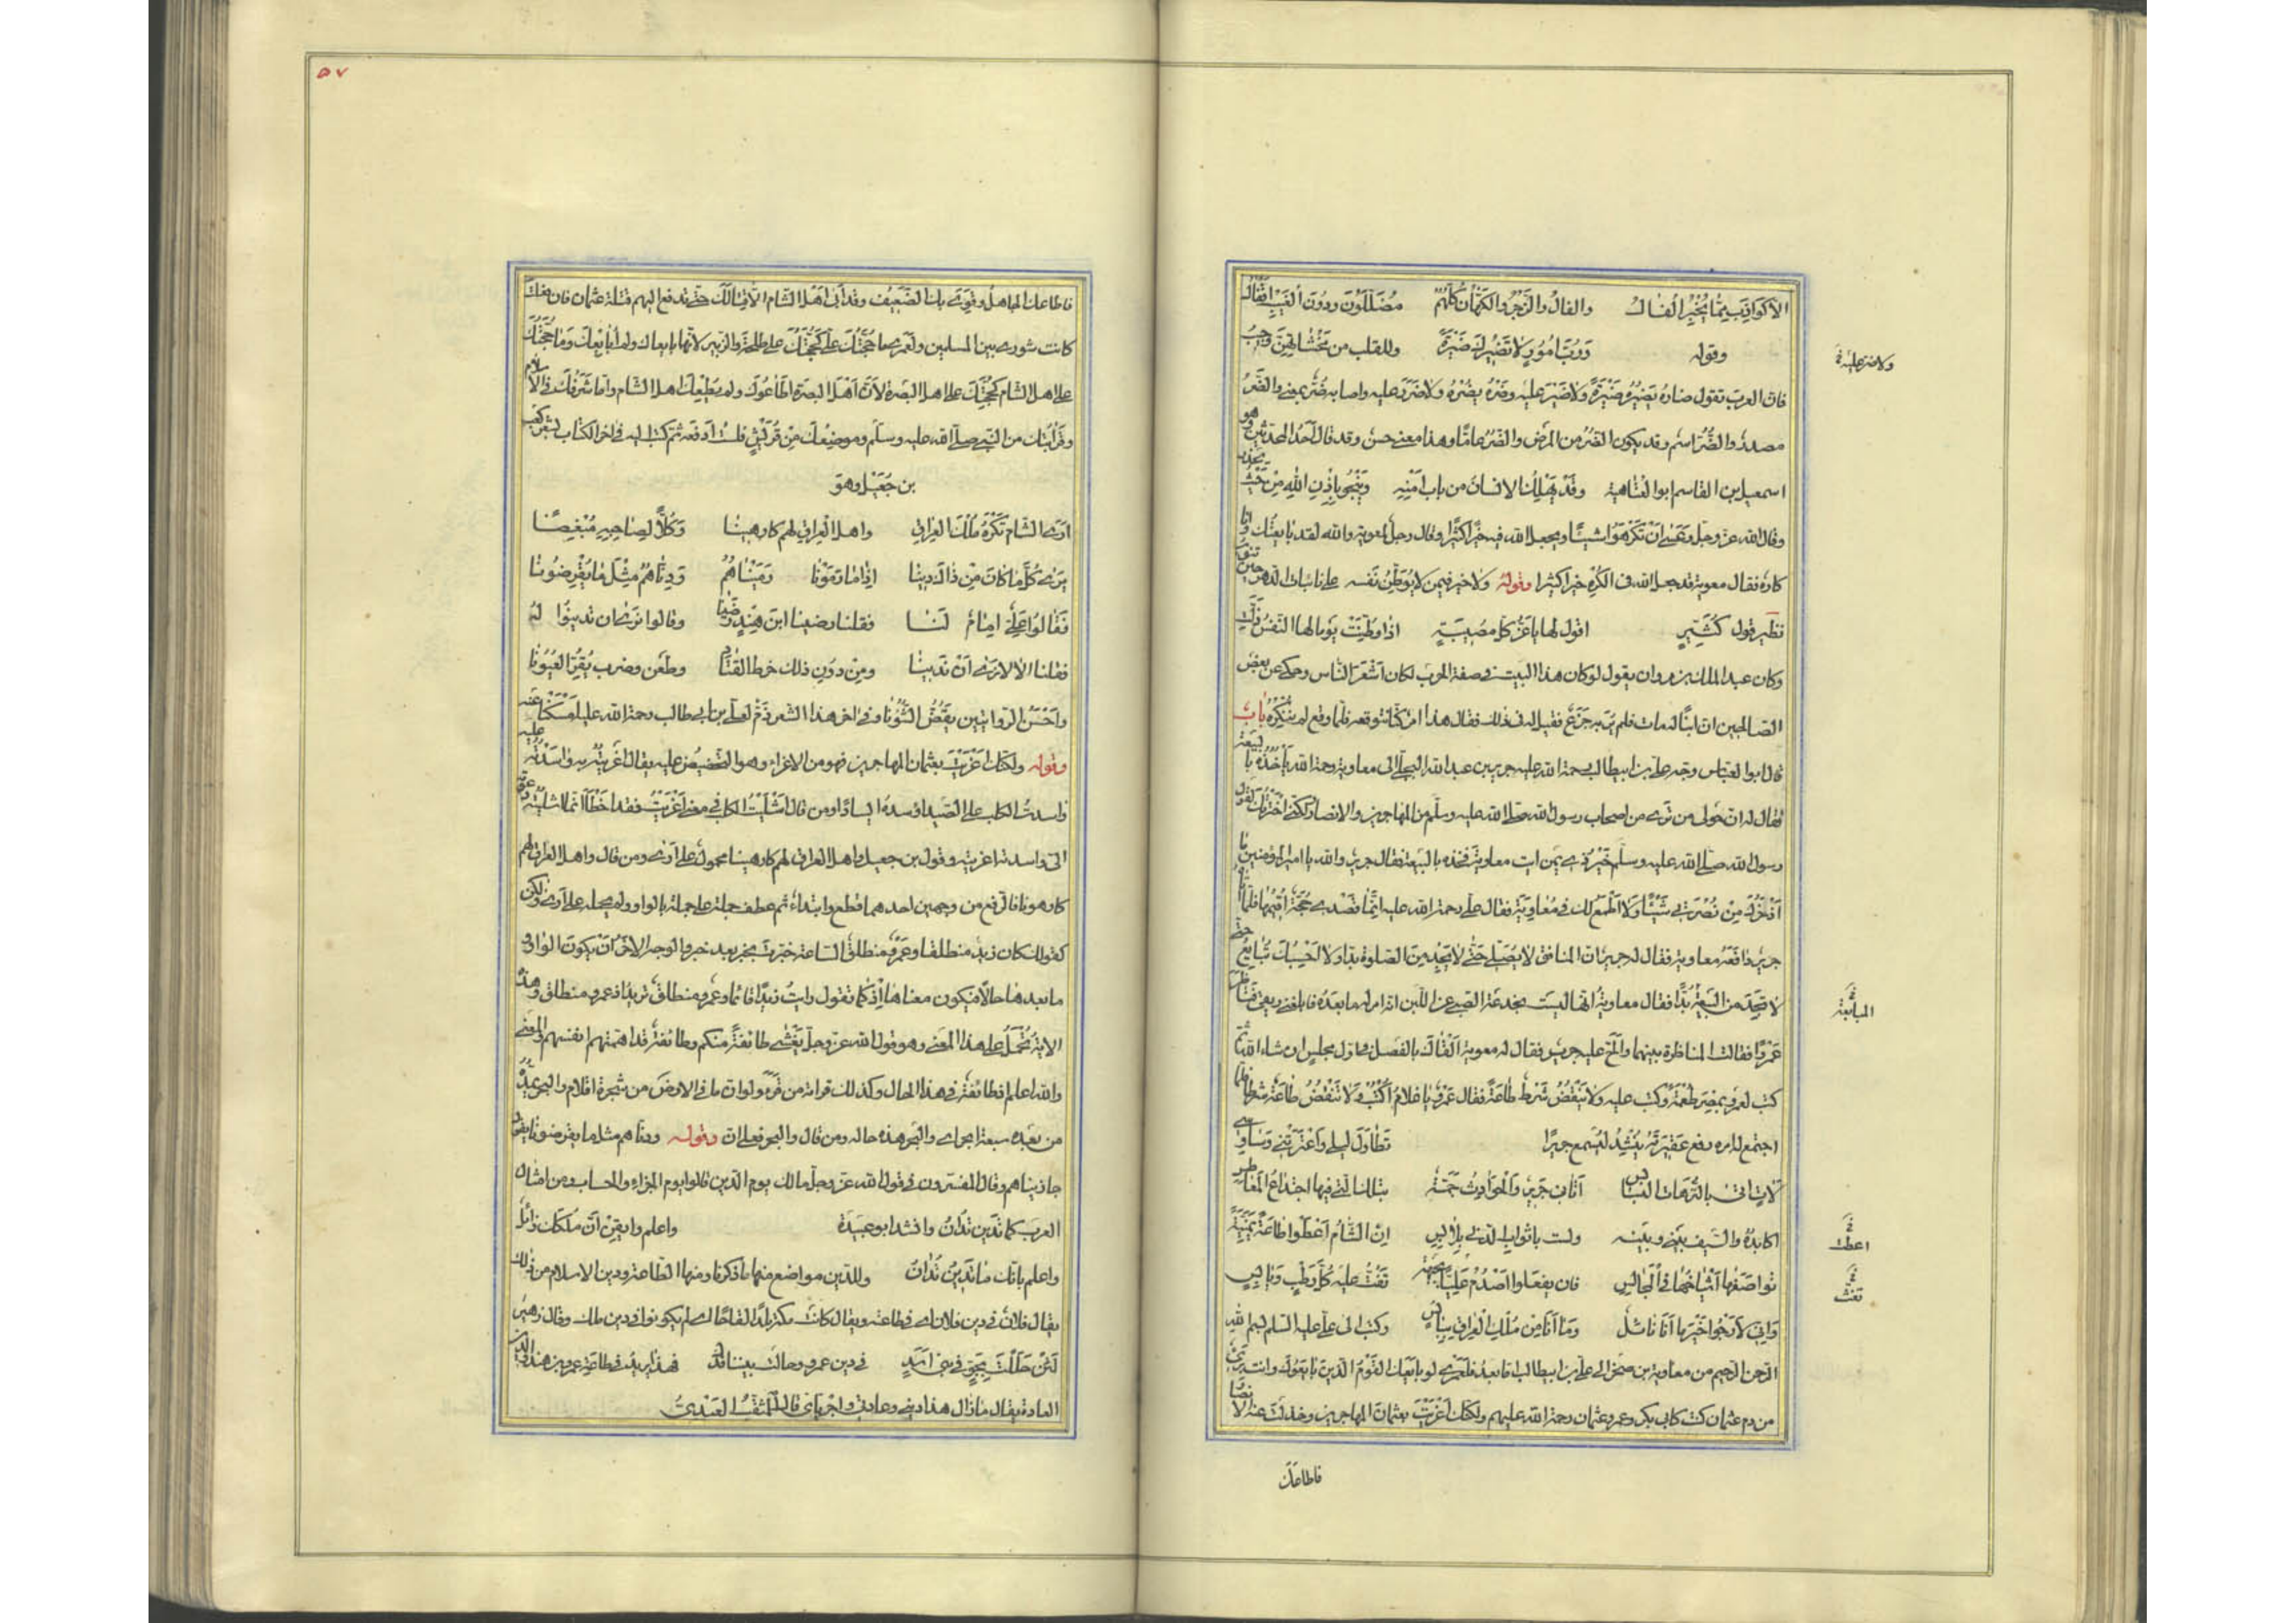 الا كواذب مما يخبر الفال والفال والزجر والكهان كلهم مضللون ودون الغيب اقفال
وقوله ورب امور لا تضيرك ضيرة وللقلب من مخشاتهن وجيب
فان العرب تقول ضاره يضيره ضيرة ولا ضير عليه وضره يضره ولا ضرر عليه واصابه ضر بمعنى والضر
ولا ضر عليه
مصدر والضر اسم وقد يكون الضر من المرض والضر عاما وهذا معنى حسن وقد قال احد المحدثين وهو
اسمعيل بن القاسم ابو العتاهية وقد يهلك الانسان من باب امنه وينجو باذن الله من حيث يحذر
وقال الله عز وجل وعسى ان تكرهوا شيئا ويجعل الله فيه خيرا كثيرا وقال رجل لمعوية والله لقد بايعتك وانا
كاره فقال معوية قد جعل الله فى الكره خيرا كثيرا وقوله ولا خير فيمن لا يوطن نفسه على نائبات الدهر حين تنوب
نظير قول كثير اقول لها يا عز كل مصيبة اذا وطنت يوما لها النفس ذلت
وكان عبد الملك بن مروان يقول لو كان هذا البيت فى صفة الحرب لكان اشعر الناس وحكى عن بعض
الصالحين ان ابنا له مات فلم ير به جزع فقيل له فى ذلك فقال هذا امر كنا نتوقعه فلما وقع لم ننكره باب
قال ابو العباس وجه على بن ابيطالب رحمة الله عليه جرير بن عبد الله البجلى الى معاوية رحمة الله ياخذه بالبيعة
فقال له ان حولى من ترى من اصحاب رسول الله صلى الله عليه وسلم من المهاجرين والانصار ولكنى اخترتك لقول
رسول الله صلى الله عليه وسلم خير ذى يمن ائت معاوية فخذه بالبيعة فقال جرير والله يا امير المؤمنين ما
ادخرك من نصرتى شيئا ولا اطمع لك فى معاوية فقال على رحمة الله عليه انما قصدى حجة اقيمها فلما اتاه
جرير دافعه معاوية فقال له جرير ان المنافق لا يصلى حتى لا يجد من الصلوة بدا ولا احسبك تبايع حتى
لا تجد من البيعة بدا فقال معاوية انها ليست بخدعة الصبى عن اللبن انه امر له ما بعده فابلعنى ريقى فناظر
المبايعة
عمرا فقالت المناظرة بينهما والح عليه جرير فقال له معوية القاك بالفصل فى اول مجلس ان شاء الله ثم
كتب لعمرو بمصر طعمة وكتب عليه ولا ينقض شرط طاعة فقال عمرو يا غلام اكتب ولا تنقض طاعة شرطا فلما
اجتمع له امره رفع عقيرته ينشد ليسمع جريرا تطاول ليلى واعترتنى وساوسى
لات اتى بالترهات البسابس اتانى جرير والحوادث جمة بتلك التى فيها اجتداع المعاطس
اكابده والسيف بينى وبينه ولست باثواب الدنى بلابس ان الشام اعطوا طاعة يمنية
اعطت
تواصفها اشياخها فى المجالس فان يفعلوا اصدم عليا بجبهة تفت عليه كل رطب ويابس
تغث
وانى لارجو خير ما انا نائل وما انا من ملك العراق بيائس وكتب الى على عليه السلم بسم الله
الرحمن الرحيم من معاوية بن صخر الى على بن ابيطالب اما بعد فلعمرى لو بايعك القوم الذين بايعوك وانت برئ
من دم عثمان كنت كابى بكر وعمر وعثمان رحمة الله عليهم ولكنك اغريت بعثمان المهاجرين وخذلت عنه الانصار
فاطاعك
٥٧
فاطاعك الجاهل وقوى بك الضعيف وقد ابى اهل الشام الا قتالك حتى تدفع اليهم قتلة عثمان فان فعلت
كانت شورى بين المسلمين ولعمرى ما حجتك على كحجتك على طلحة والزبير لانهما بايعاك ولم ابايعك وما حجتك
على اهل الشام كحجتك على اهل البصرة لان اهل البصرة اطاعوك ولم يطعك اهل الشام واما شرفك فى الاسلام
وقرابتك من النبى صلى الله عليه وسلم وموضعك من قريش فلست ادفعه ثم كتب اليه فى اخر الكتاب بشعر كعب
بن جعيل وهو
ارى الشام تكره ملك العراق واهل العراق لهم كارهينا وكلا لصاحبه مبغضا
يرى كل ما كان من ذاك دينا اذا ما رمونا رميناهم ودناهم مثل ما يقرضونا
فقالوا على امام لنا فقلنا رضينا ابن هند رضينا وقالوا نرى ان تدينوا له
فقلنا الا لا نرى ان ندينا ومن دون ذلك خرط القتاد وطعن وضرب يقر العيونا
واحسن الروايتين يفض الشؤونا وفى اخر هذا الشعر ذم لعلى بن ابى طالب رحمة الله عليه امسكنا عنه
وقوله ولكنك اغريت بعثمان المهاجرين فهو من الاغراء وهو التحضيض عليه يقال اغريته به واسدته عليه
واسدت الكلب على الصيد اوسده ايسادا ومن قال اشليت الكلب فى معنى اغريت فقد اخطا انما اشليته دعوته
الى واسدته اغريته وقول بن جعيل واهل العراق لهم كارهينا محمول على ارى ومن قال واهل العراق لهم
كارهونا فالرفع من وجهين احدهما قطع وابتداء ثم عطف جملة على جملة بالواو ولم يحمله على ارى ولكن
كقولك كان زيد منطلقا وعمرو منطلق الساعة خبرت بخبر بعد خبر والوجه الاخر ان يكون الواو فى
ما بعدها حالا فيكون معناها اذ كما تقول رايت زيدا قائما وعمرو منطلق تريد اذ عمرو منطلق وهذه
الاية تحمل على هذا المعنى وهو قول الله عز وجل يغشى طائفة منكم وطائفة قد اهمتهم انفسهم والمعنى
والله اعلم اذ طائفة فى هذا الحال وكذلك قراءة من قرا ولو ان ما فى الارض من شجرة اقلام والبحر يمده
من بعده سبعة ابحر اى والبحر هذه حاله ومن قال والبحر فعلى ان وقوله ودناهم مثل ما يقرضونا يقول
جازيناهم وقال المفسرون فى قول الله عز وجل مالك يوم الدين قالوا يوم الجزاء والحساب ومن امثال
العرب كما تدين تدان وانشد ابو عبيدة واعلم وايقن ان ملكك زائل
واعلم بانك ما تدين تدان وللدين مواضع منها ما ذكرنا ومنها الطاعة ودين الاسلام من ذلك
يقال فلان فى دين فلان اى فى طاعته ويقال كانت مكة بلدا لقاحا اى لم يكونوا فى دين ملك وقال زهير
لئن حللت بجو فى بنى اسد فى دين عمرو وحالت بيننا فدك فهذا يريد فى طاعة عمرو بن هند والدين
العادة يقال ما زال هذا دينى وعادتى واجرياى قال المثقب العبدى